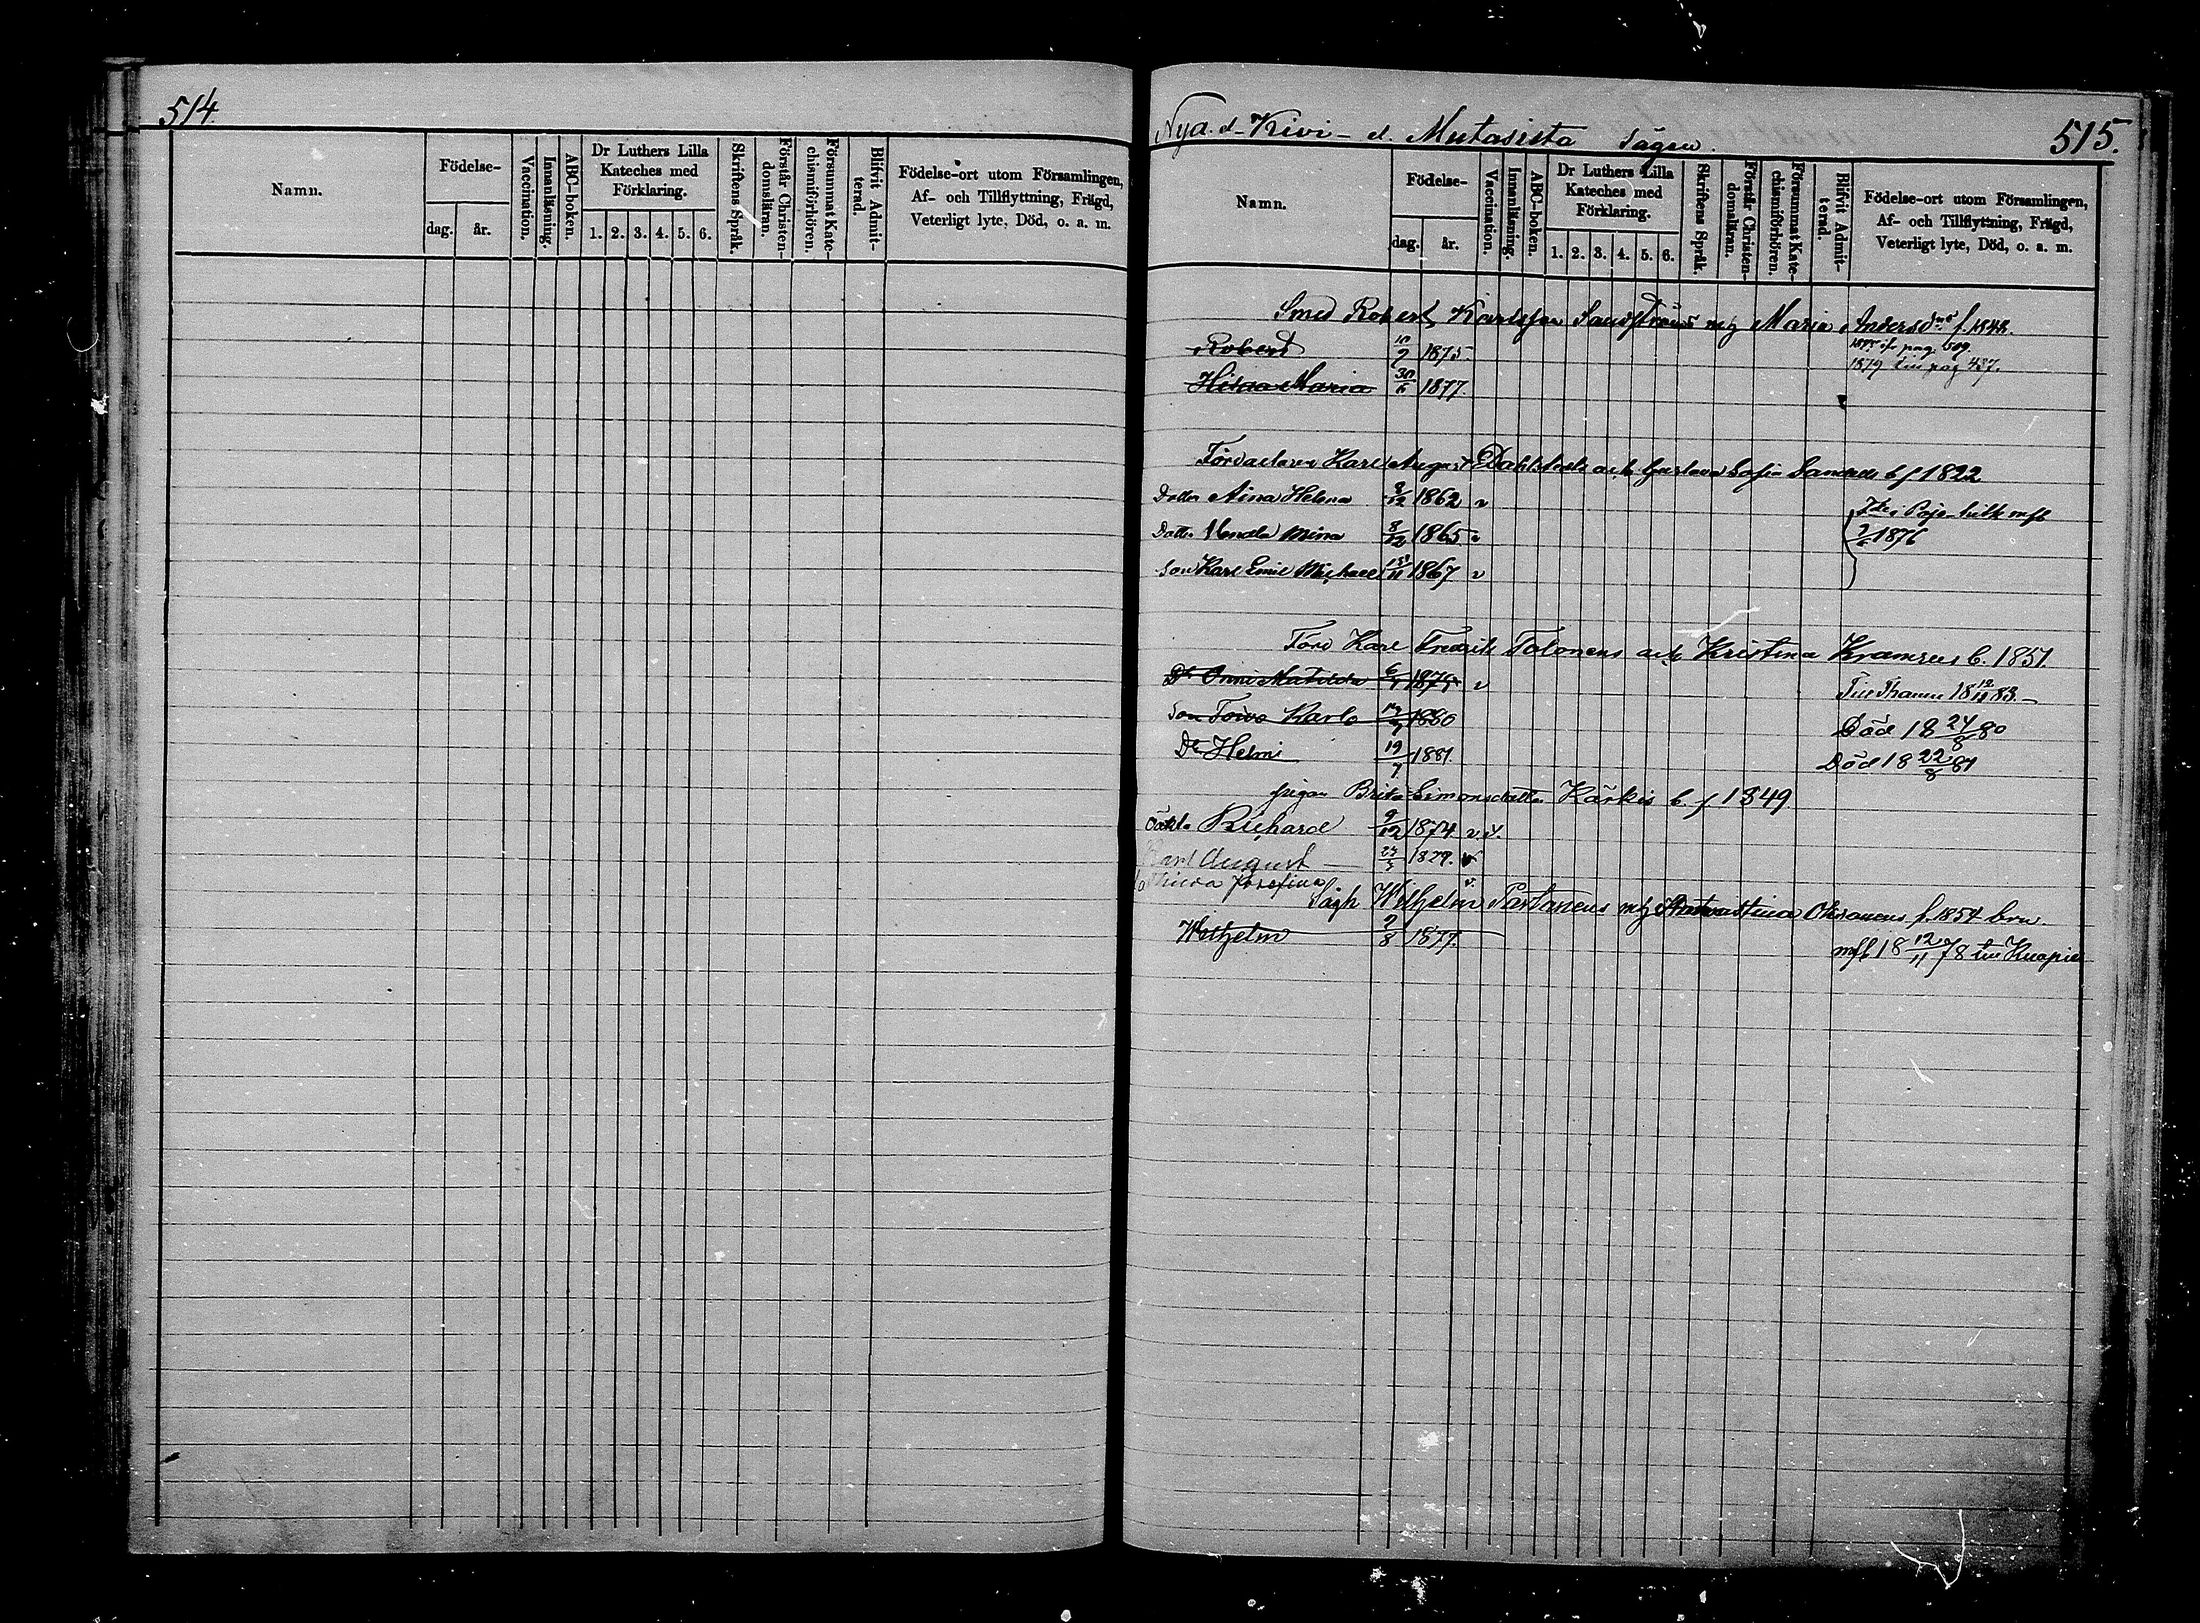 514.
Namn.
Födelse-
dag.
år.
Vaccination.
Innanläsning.
ABC-boken.
Dr Luthers Lilla
Kateches med
Förklaring.
1. 2. 3. 4. 5. 6.
Skriftens Språk.
Förstår Christen-
domsläran.
Försummat Kate-
chismiförhören.
Blifvit Admit-
terad.
Födelse-ort utom Församlingen,
Af- och Tillflyttning, Frägd,
Veterligt lyte, Död, o. a. m.
Nya. el- Kivi- el. Mutasista Sågen.
515.
Namn.
Födelse-
dag.
år.
Vaccination.
Innanläsning.
ABC-boken.
Dr Luthers Lilla
Kateches med
Förklaring.
1. 2. 3. 4. 5. 6.
Skriftens Språk.
Förstår Christen-
domsläran.
Försummat Kate-
chismiförhören.
Blifvit Admit-
terad.
Födelse-ort utom Församlingen,
Af- och Tillflyttning, Frägd,
Veterligt lyte, Död, o. a. m.
Smed Robert Karlsson Sandströms m/ Maria Andersd:s f. 1842.
Robert 10/9 1875 pag. 509.
1879 till pag 437.
Hilda Maria 30/6 1877.
Karl August Dahlstedts och Gustava Sofia b f 1822
Dotter Aina Helena 9/12 1862 v
Dotter Vendla Mina 8/12 1865 v Pojo mfb
1876
Son Karl Emil Michael 15/11 1867 v
Förv Karl Fredrik Tolonens och Kristina Kramsus b. 1851.
Dr Onni Matilda 1875 v Till Thamm 18 12/12 83.
Son Toivo Karlo 1880 Död 18 24/8 80
Dr Helmi 19/7 1881. Död 18 22/8 81
pigan Brita Simonsdotter Kärkis b. f. 1849
oäkta Richard 9/12 1874 v v.
Karl August 1879. v
Josefina v.
Sågk Wilhelm Partanens m/ f. 1854 brn.
Wilhelm 9/8 1877. mfb 18 12/11 78 till Kuopio